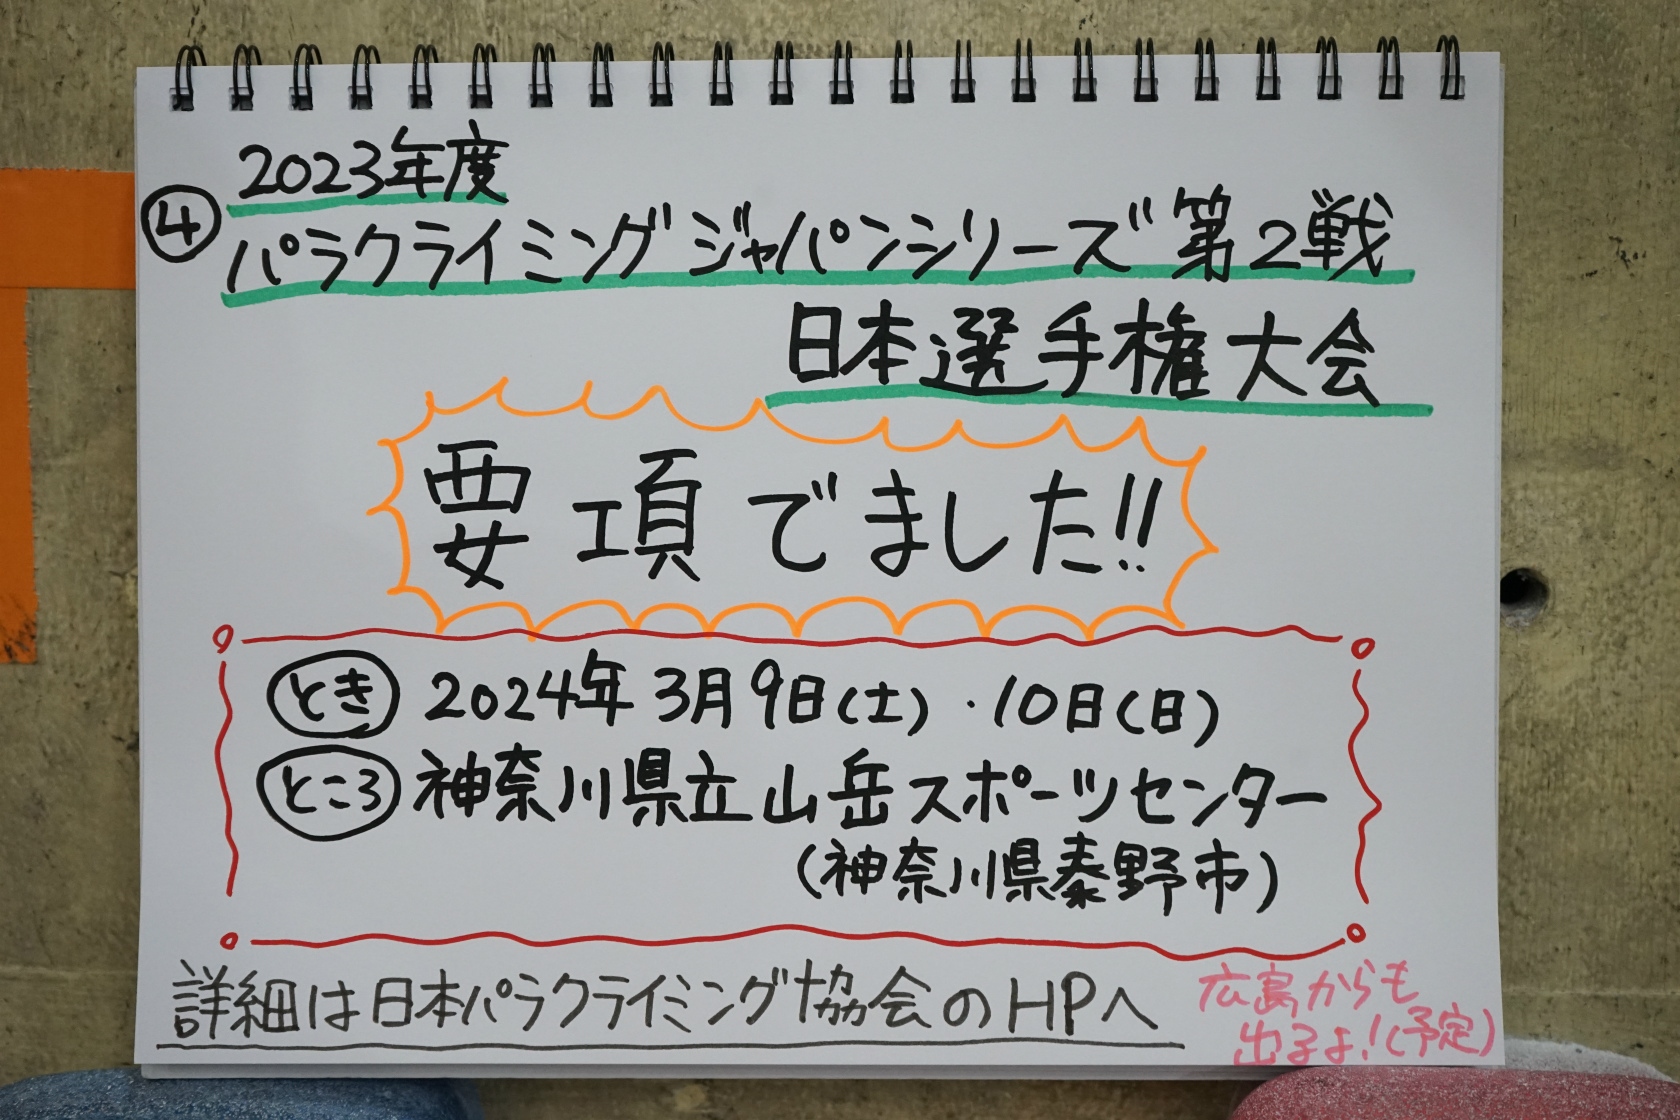 2023年度
④ パラクライミングジャパンシリーズ第2戦
日本選手権大会
要項でました!!
とき 2024年3月9日(土)・10日(日)
ところ 神奈川県立山岳スポーツセンター
(神奈川県秦野市)
詳細は日本パラクライミング協会のHPへ
広島からも
出るよ!(予定)